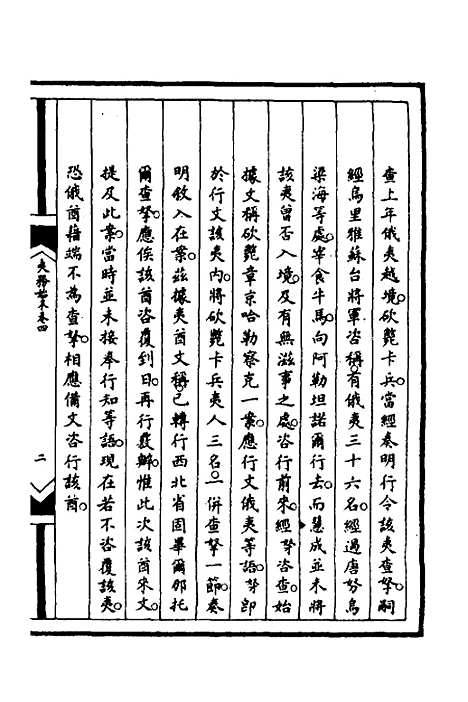 查上年俄夷越境。砍斃卡兵。當經奏明行令該夷查拏。嗣
經烏里雅蘇台將軍咨稱。有俄夷三十六名。經過唐努烏
梁海等處。宰食牛馬。向阿勒坦諾爾行去。而慧成並未將
該夷曾否入境。及有無滋事之處。咨行前來。經咨查。始
據文稱砍斃章京哈勒察克一案。應行文俄夷等語。即
於行文該夷內。將砍斃卡兵夷人三名。一併查拏一節。奏
明敘入在案。茲據夷酋文稱。已轉行西北省固畢爾那托
爾查拏。應俟該酋咨覆到日。再行發辦。惟此次該酋來文。
提及此案。當時並未接奉行知等語。現在若不咨覆該夷。
恐俄酋藉端不為查拏。相應備文咨行該酋。
夷務始末卷四
二